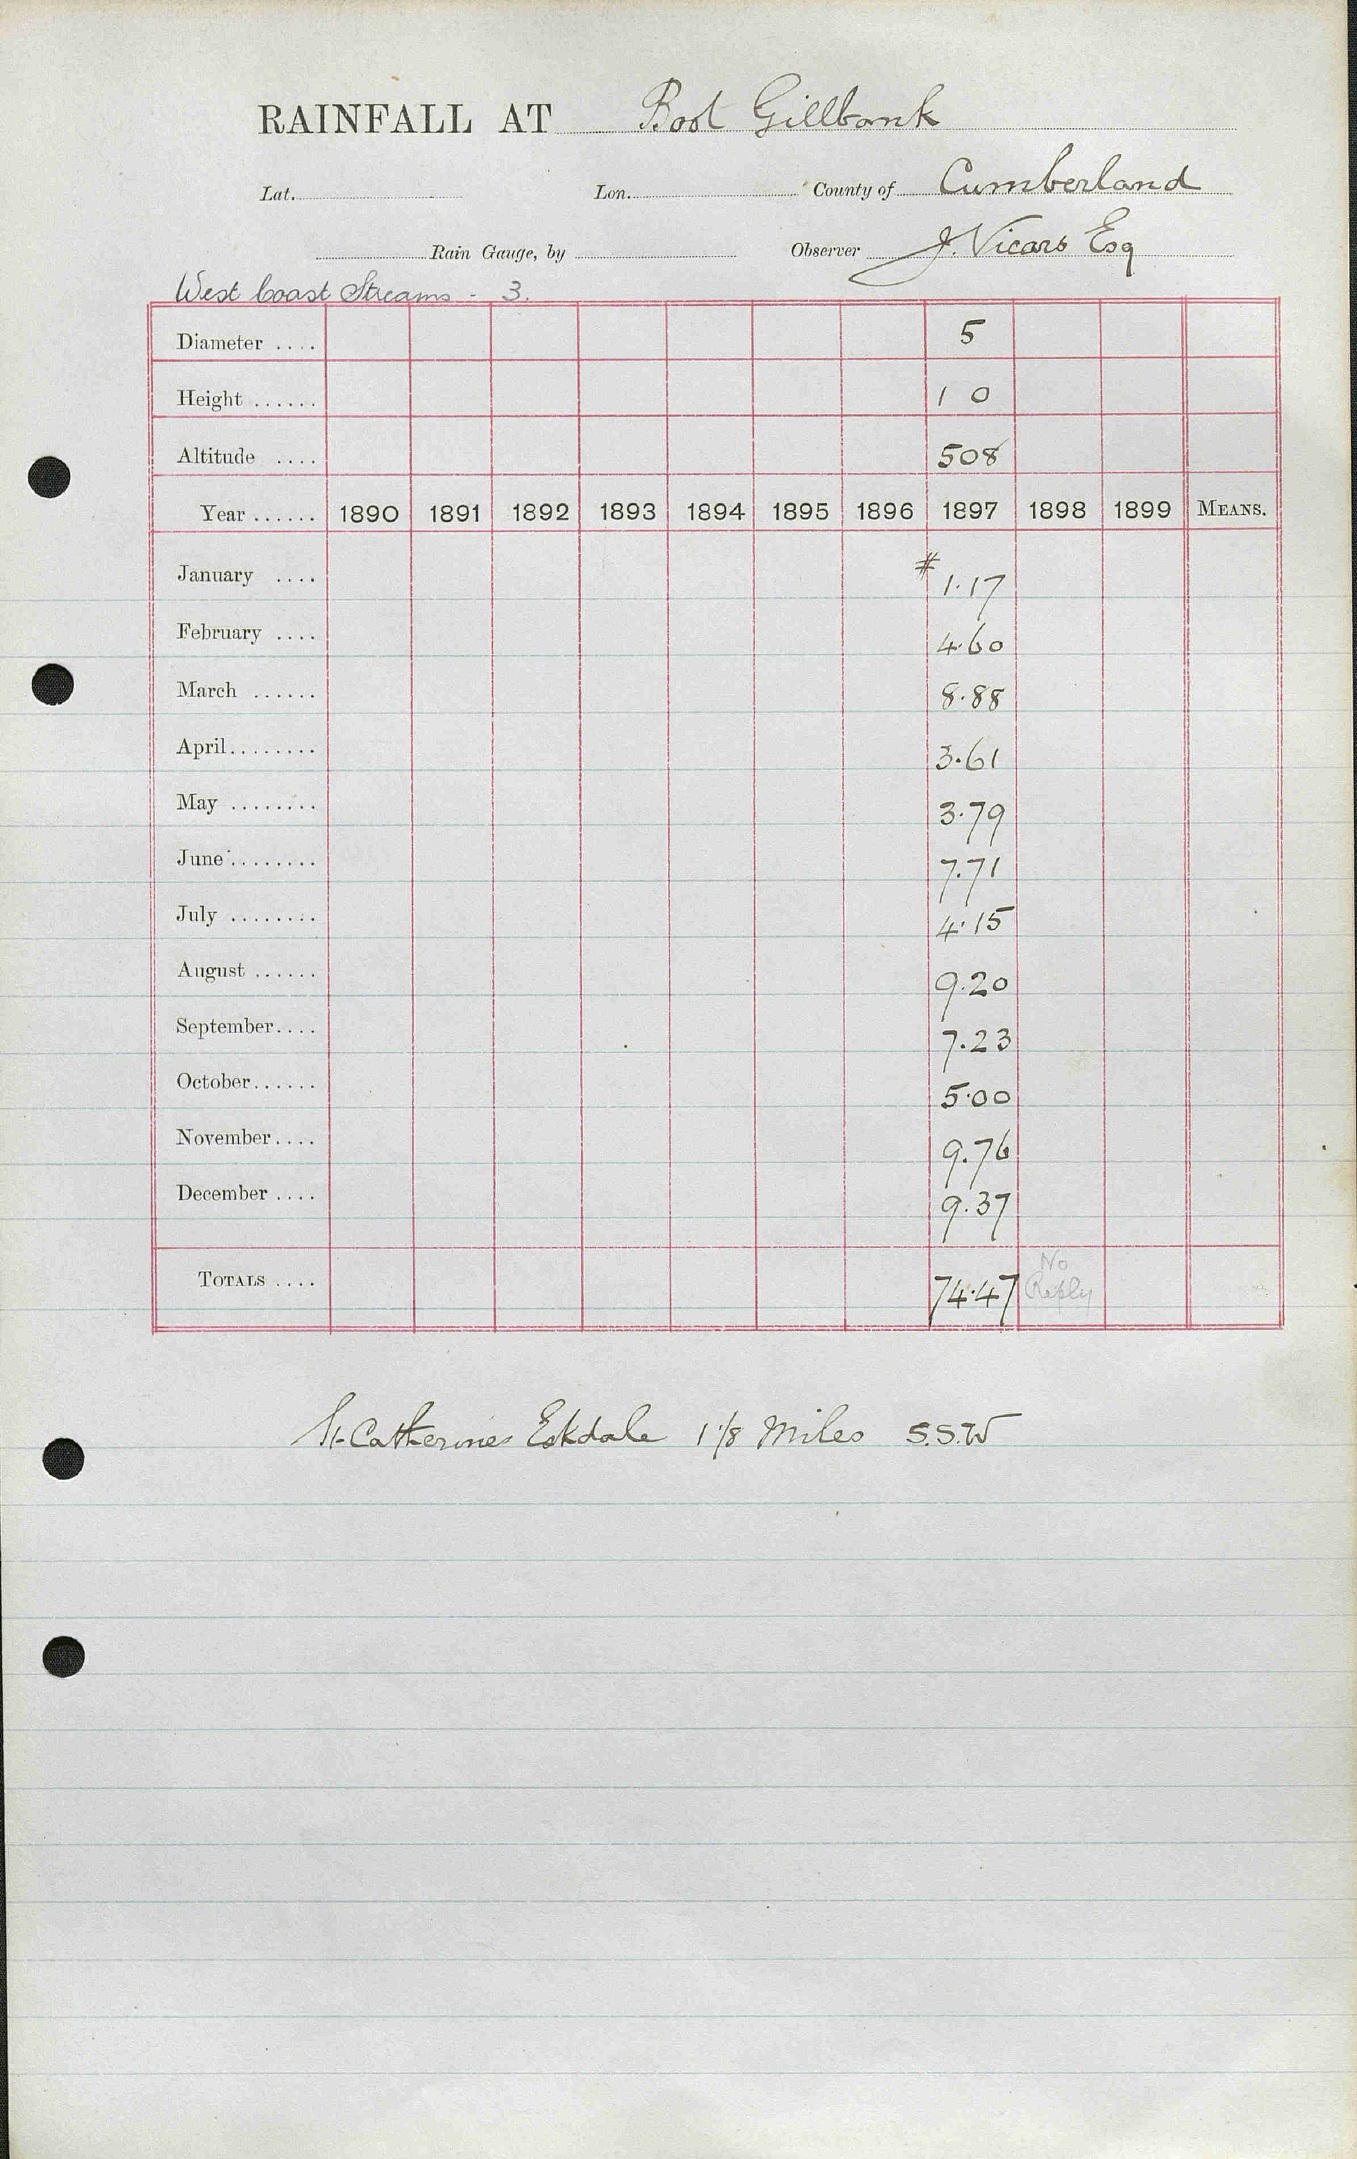 RAINFALL AT Boot Gillbank
Lat. Lon. County of Cumberland
Rain Gauge, by Observer J. Vicars Esq
West Coast Streams - 3.
Diameter .... 5
Height ...... 1 0
Altitude .... 508
Year ...... 1890 1891 1892 1893 1894 1895 1896 1897 1898 1899 MEANS.
January .... # 1.17
February .... 4.60
March ...... 8.88
April........ 3.61
May ........ 3.79
June ........ 7.71
July ........ 4.15
August ...... 9.20
September.... 7.23
October...... 5.00
November.... 9.76
December .... 9.37
TOTALS .... 74.47 No Reply
St Catherines Eskdale 1 1/8 Miles S.S.W